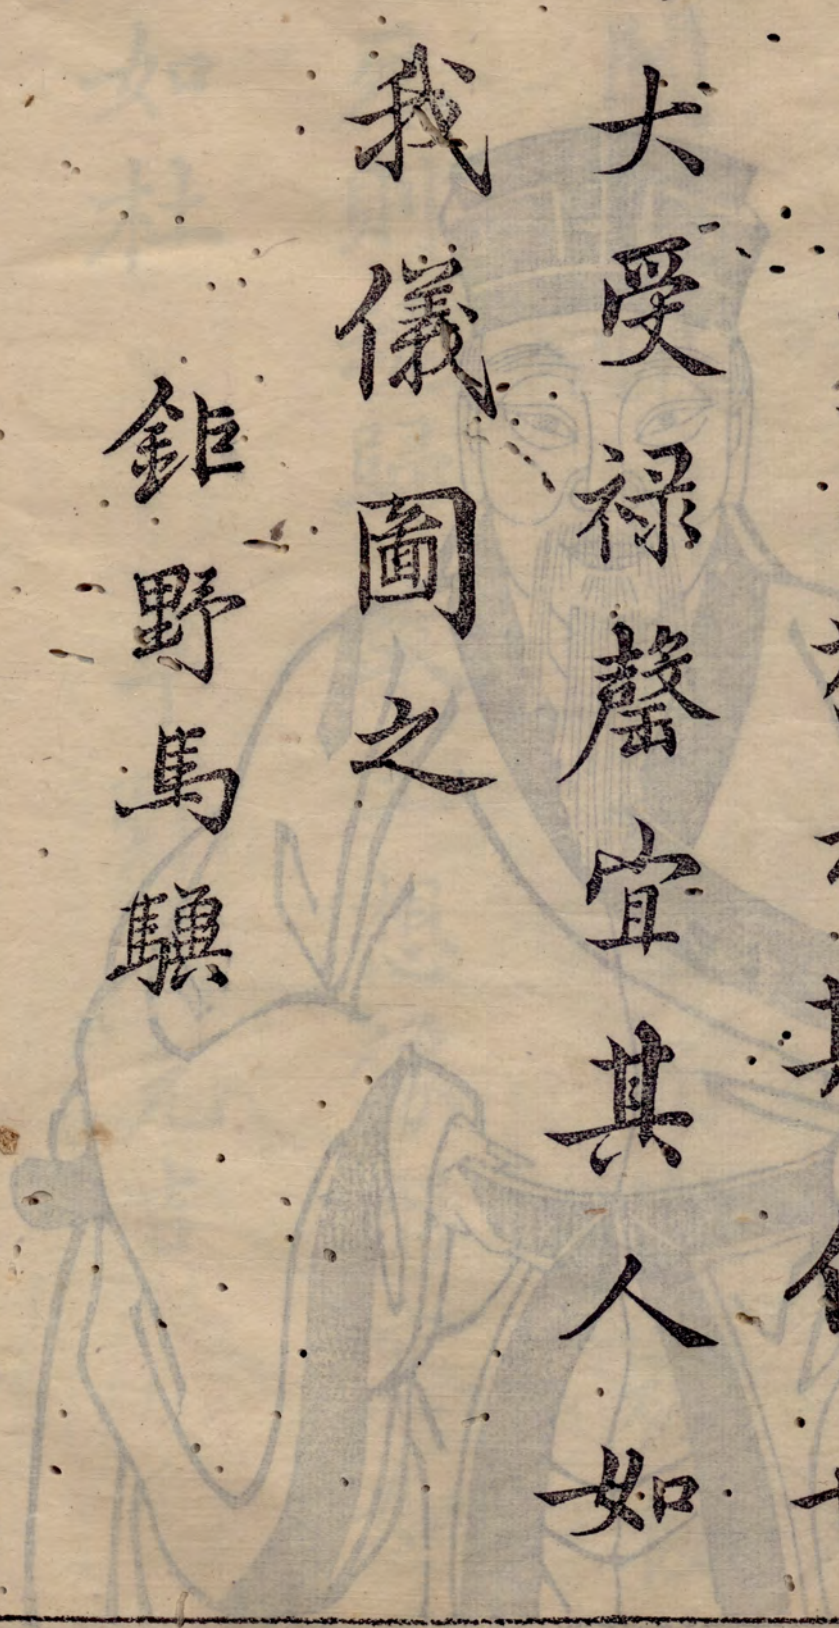 大受祿罄宜其人如
我儀圖之
鉅野馬驥